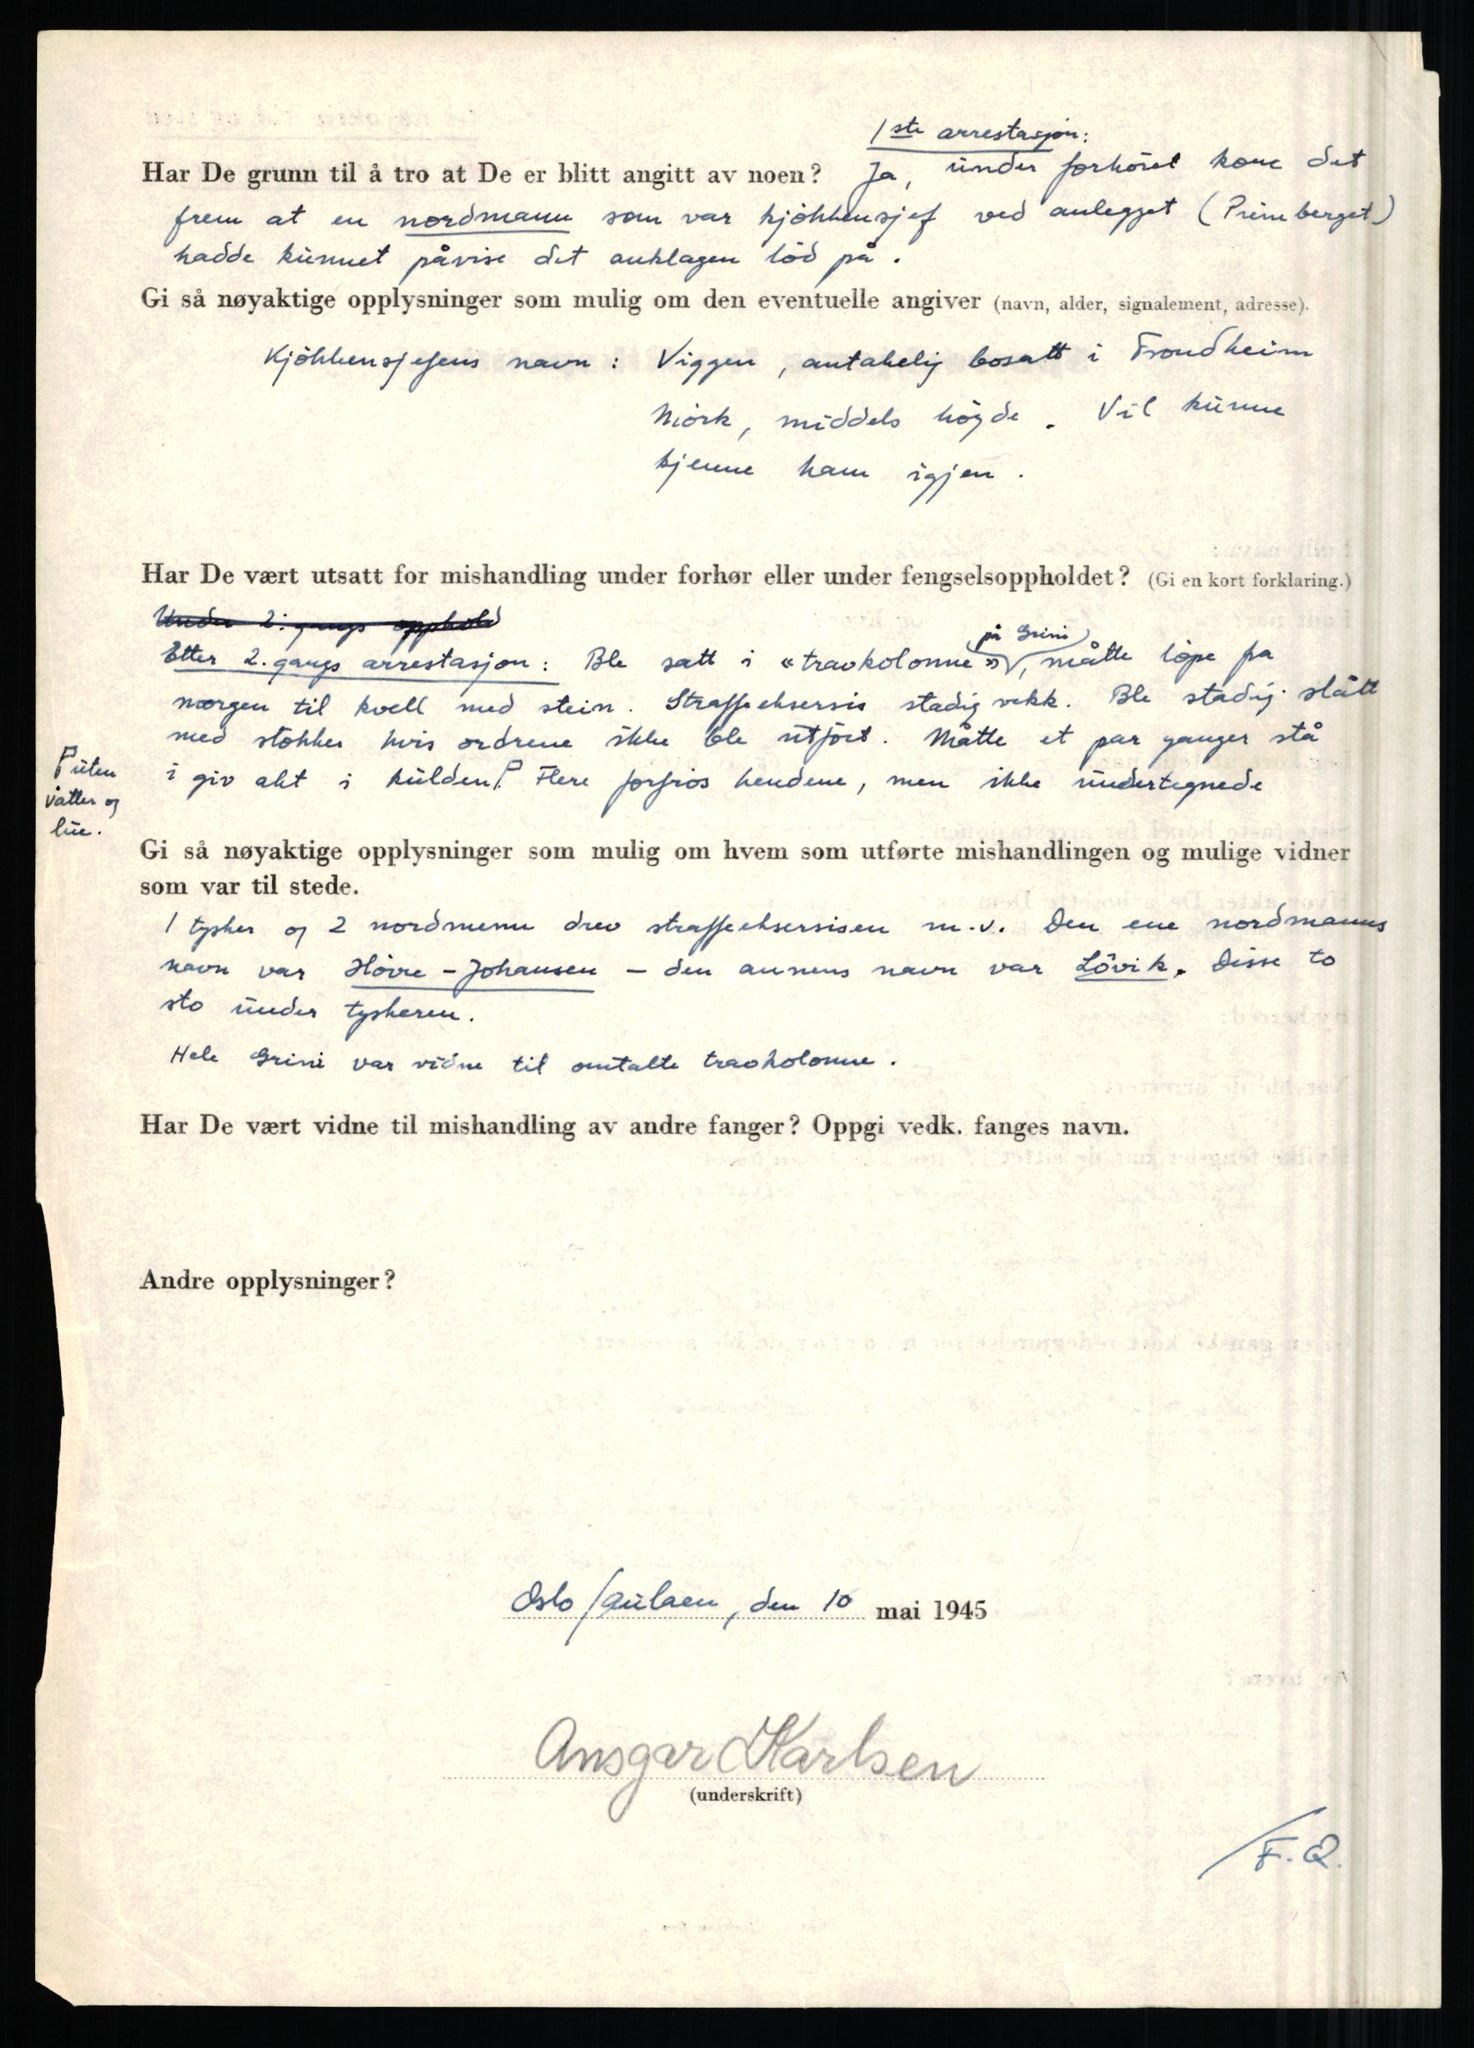 1ste arrestasjon:
Har De grunn til å tro at De er blitt angitt av noen? Ja, under forhöret kom det
frem at en nordmann som var kjökkensjef ved anlegget (Primberget)
hadde kunnet påvise det anklagen löd på.
Gi så nøyaktige opplysninger som mulig om den eventuelle angiver (navn, alder, signalement, adresse).
Kjökkensjefens navn: Viggen, antakelig bosatt i Trondheim
Mörk, middels höyde. Vil kunne
kjenne ham igjen.
Har De vært utsatt for mishandling under forhør eller under fengselsoppholdet? (Gi en kort forklaring.)
Under 2. gangs opphold
Etter 2. gangs arrestasjon: Ble satt i «travkolonne» på Grini, måtte löpe fra
morgen til kvell med stein. Straffeeksersis stadig vekk. Ble stadig slått
med stokker hvis ordrene ikke ble utfört. Måtte et par ganger stå
i giv akt i kulden Γ. Flere forfrös hendene, men ikke undertegnede
Γ uten
våtter og
lue.
Gi så nøyaktige opplysninger som mulig om hvem som utførte mishandlingen og mulige vidner
som var til stede.
1 tysker og 2 nordmenn drev straffeeksersisen m.v. Den ene nordmanns
navn var Hövre-Johansen – den annens navn var Lövik. Disse to
sto under tyskeren.
Hele Grini var vidne til omtalte travkolonne.
Har De vært vidne til mishandling av andre fanger? Oppgi vedk. fanges navn.
Andre opplysninger?
Oslo/Aulaen, den 10 mai 1945
Ansgar Karlsen
(underskrift)
/F.Q.